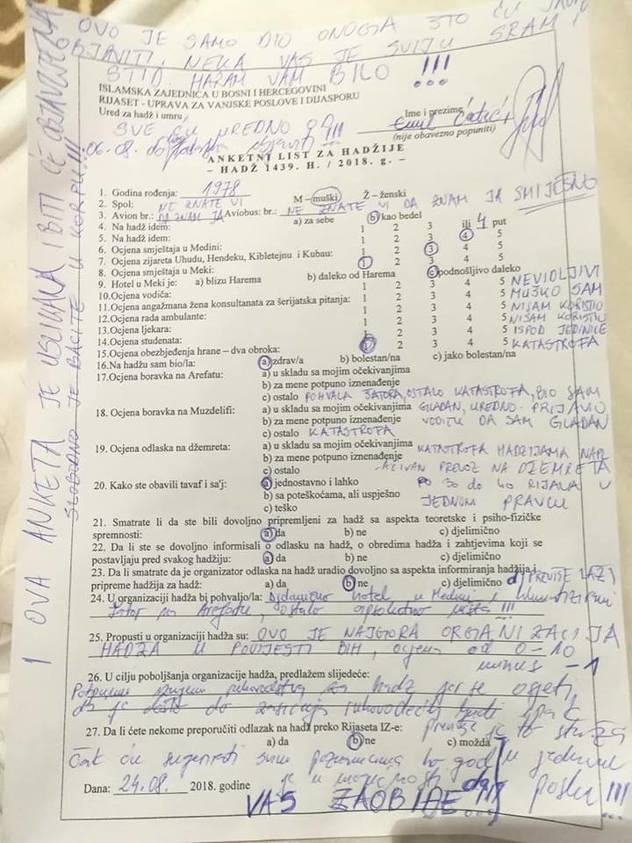 OVO JE SAMO DIO ONOGA ŠTO ĆU JAVNO
OBJAVITI, NEKA VAS JE SVIJU SRAM I
STID. HARAM VAM BILO !!!
1 OVA ANKETA JE USLIKANA I BIT ĆE OBJAVLJENA
SLOBODNO JE BACITE U KORPU!!!
ISLAMSKA ZAJEDNICA U BOSNI I HERCEGOVINI
RIJASET - UPRAVA ZA VANJSKE POSLOVE I DIJASPORU
Ured za hadž i umru
Ime i prezime
(nije obavezno popuniti)
SVE UREDNO
ANKETNI LIST ZA HADŽIJE
– HADŽ 1439. H. / 2018. g. –
1. Godina rođenja: 1978
2. Spol: NE ZNATE VI M – muški Ž – ženski
3. Avion br.: DA ZNAM JA Aviobus: br.: NE ZNATE VI DA ZNAM JA SMIJEŠNO
4. Na hadž idem: a) za sebe b) kao bedel
5. Na hadž idem: 1 2 3 ili 4 put
6. Ocjena smještaja u Medini: 1 2 3 4 5
7. Ocjena zijareta Uhudu, Hendeku, Kibletejnu i Kubau: 1 2 3 4 5
8. Ocjena smještaja u Meki: 1 2 3 4 5
9. Hotel u Meki je: a) blizu Harema b) daleko od Harema c) podnošljivo daleko
10. Ocjena vodiča: 1 2 3 4 5 NEVIDLJIVI
11. Ocjena angažmana žena konsultanata za šerijatska pitanja: 1 2 3 4 5 MUŠKO SAM
12. Ocjena rada ambulante: 1 2 3 4 5 NISAM KORISTIO
13. Ocjena ljekara: 1 2 3 4 5 NISAM KORISTIO
14. Ocjena studenata: 1 2 3 4 5 ISPOD JEDINICE
15. Ocjena obezbjeđenja hrane – dva obroka: 1 2 3 4 5 KATASTROFA
16. Na hadžu sam bio/la: a) zdrav/a b) bolestan/na c) jako bolestan/na
17. Ocjena boravka na Arefatu: a) u skladu sa mojim očekivanjima
b) za mene potpuno iznenađenje
c) ostalo POHVALA ŠATORA, OSTALO KATASTROFA, BIO SAM
18. Ocjena boravka na Muzdelifi: a) u skladu sa mojim očekivanjima GLADAN, UREDNO PRIJAVIO
b) za mene potpuno iznenađenje VODIČU DA SAM GLADAN
c) ostalo KATASTROFA
19. Ocjena odlaska na džemreta: a) u skladu sa mojim očekivanjima KATASTROFA HADŽIJAMA NAPL
b) za mene potpuno iznenađenje
c) ostalo -AĆIVAN PREVOZ NA DŽEMRETA
20. Kako ste obavili tavaf i sa'j: a) jednostavno i lahko PO 30 do 40 RIJALA U
b) sa poteškoćama, ali uspješno JEDNOM PRAVCU
c) teško
21. Smatrate li da ste bili dovoljno pripremljeni za hadž sa aspekta teoretske i psiho-fizičke
spremnosti: a) da b) ne c) djelimično
22. Da li ste se dovoljno informisali o odlasku na hadž, o obredima hadža i zahtjevima koji se
postavljaju pred svakog hadžiju: a) da b) ne c) djelimično
23. Da li smatrate da je organizator odlaska na hadž uradio dovoljno sa aspekta informiranja hadžija i
pripreme hadžija za hadž: a) da b) ne c) djelimično d) PREVIŠE LAŽI
24. U organizaciji hadža bi pohvalio/la: hotel u Medini i
šator na Arefatu, ostalo apsolutno ništa !!!
25. Propusti u organizaciji hadža su: OVO JE NAJGORA ORGANIZACIJA
HADŽA U POVIJESTI BIH, ocjena od 0-10
minus -1
26. U cilju poboljšanja organizacije hadža, predlažem slijedeće:
hadž jer se osjeti
da je došlo do zasićenja
27. Da li ćete nekome preporučiti odlazak na hadž preko Rijaseta IZ-e:
a) da b) ne c) možda
Čak ću sugerirati svim poznanicima ko god
je u mogućnosti da
Dana: 24.08. 2018. godine
VAS ZAOBIĐE !!! poslu !!!